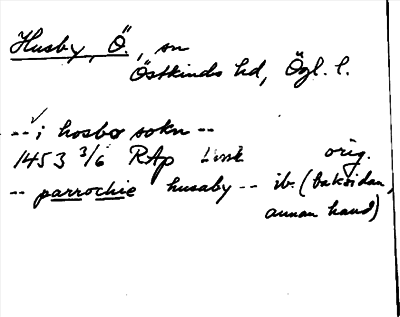 Husby, Ö., sn
Östkinds hd, Ögl. l.
-- i hosbo sokn --
1453 3/6 RAp Link orig.
-- parrochie husaby -- ib. (baksidan,
annan hand)